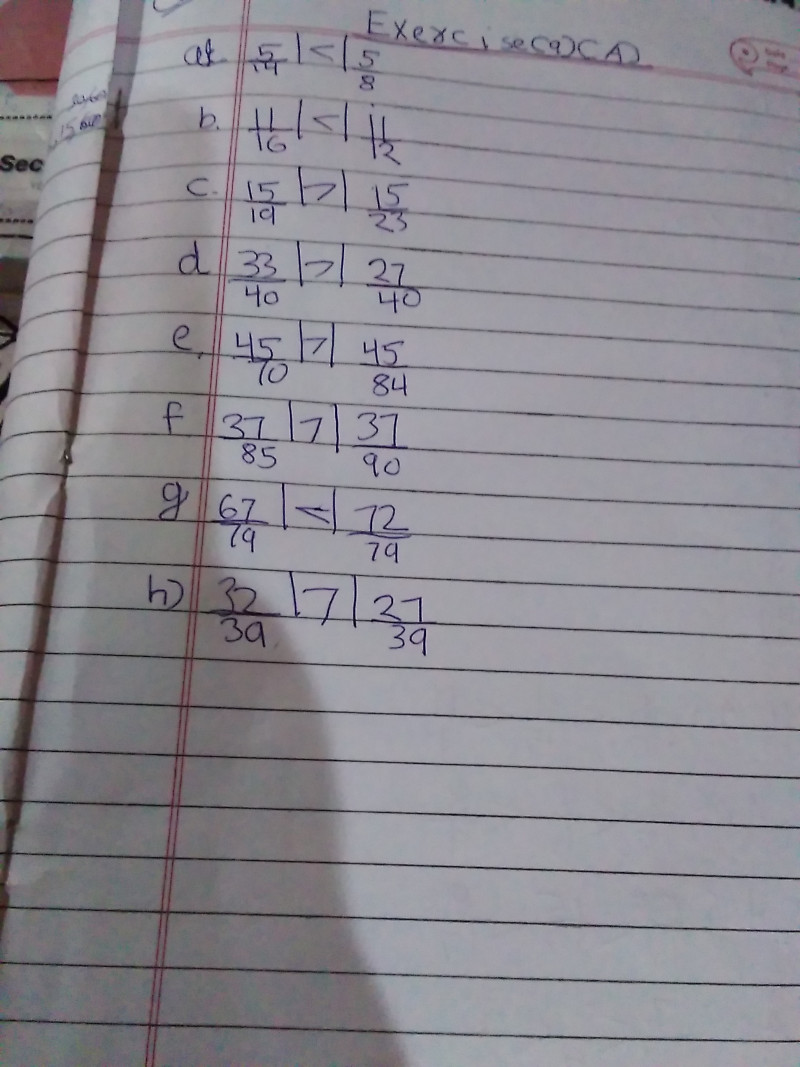 Exercise(9)(A)
a. 5/14 < 5/8
b. 11/16 < 11/12
c. 15/19 > 15/23
d 33/40 > 27/40
e. 45/70 > 45/84
f 37/85 > 37/90
g 67/79 < 72/79
h) 32/39 > 27/39
Sec